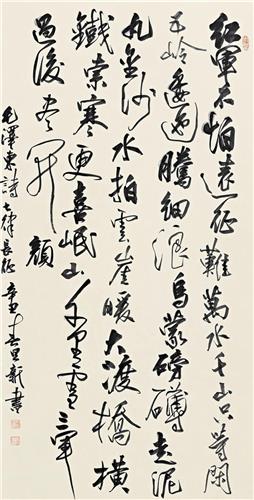 红军不怕远征難萬水千山只等閑
五嶺逶迤騰細浪烏蒙磅礴走泥
丸金沙水拍雲崖暖大渡橋橫
鐵索寒更喜岷山千里雪三軍
過後尽開顔
毛澤東詩七律長征辛丑
書